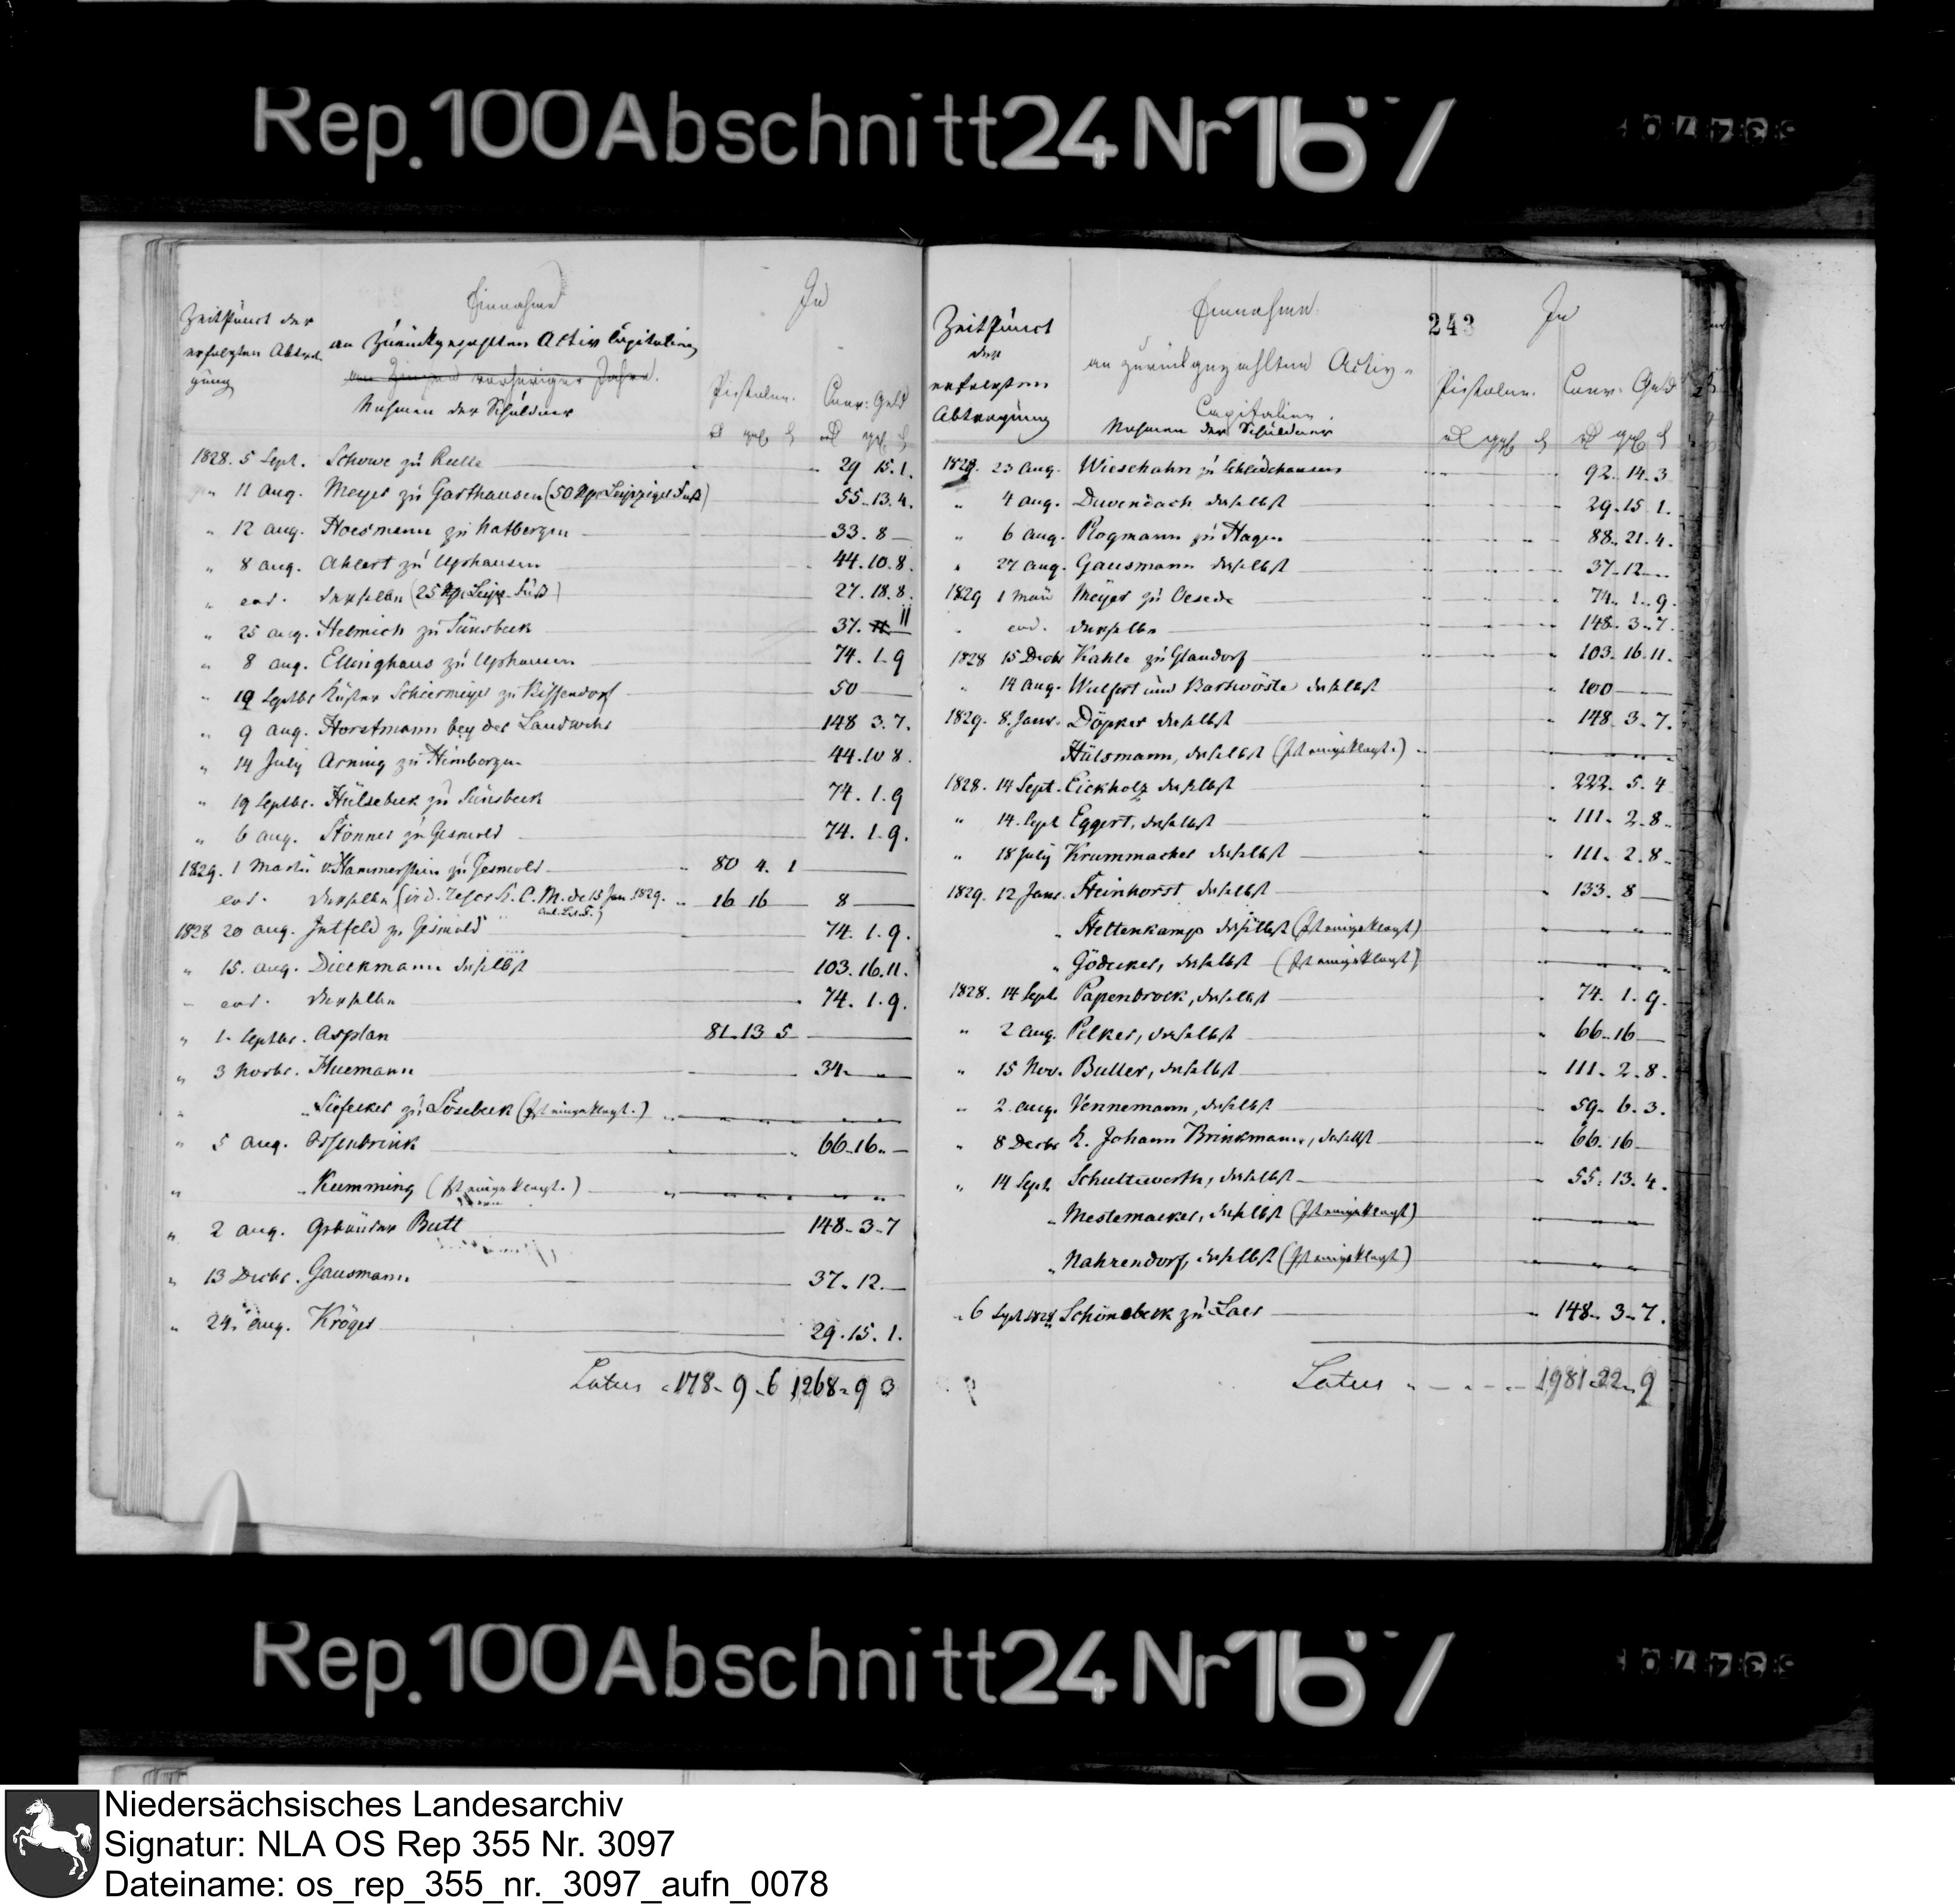 Rep. 100 Abschnitt 24 Nr 167
Einnahme
Zeitpunct der
erfolgten Abtra-
gung
an Zurückgezahlten Activ Capitalien
an Zinsen vorheriger Jahre.
Nahmen der Schuldner
In
Pistolen. Conv: Geld
1828. 5 Sept. Schowe zu Rulle 29 15. 1.
" 11 Aug. Meyer zu Garthausen (50 Leipziger Fuß) 55. 13. 4.
" 12 Aug. Hoesmann zu Natbergen 33. 8
" 8 Aug. Ahlert zu Uphausen 44. 10. 8.
" eod. derselbe (25 Leipz. Fuß) 27. 18. 8.
" 25 Aug. Helmich zu Sünsbeck 37. 11
" 8 Aug. Ellinghaus zu Uphausen 74. 1. 9
" 19 Septbr Küster Schiermeyer zu Bissendorf 50
" 9 Aug. Horstmann bey der Landwehr 148 3. 7.
" 14 July Arning zu Himbergen 44. 10 8.
" 19 Septbr. Hülsebeck zu Sünsbeck 74. 1. 9
" 6 Aug. Stönner zu Gesmold 74. 1. 9.
1829. 1 Martii v. Hammerstein zu Gesmold 80 4. 1
eod. derselbe (vid. Rescr. K. C. M. de 13 Jan. 1829. 16 16 8
1828 20 Aug. Intfeld zu Gesmold 74. 1. 9.
" 15. Aug. Dieckmann daselbst 103. 16. 11.
" eod. derselbe 74. 1. 9.
" 1. Septbr. Asplan 81. 13 5
" 3 Novbr. Huemann 34.
" Süfecker zu Lösebeck (Ist eingeklagt.)
" 5 Aug. Ossenbrink 66. 16.
" Kumming (Ist eingeklagt.)
" 2 Aug. Gebrüder Butt 148. 3. 7
" 13 Decbr. Gausmann 37. 12.
" 24. Aug. Kröger 29. 15. 1.
Latus 178. 9. 6 1268. 9 3
243
Zeitpunct
der
erfolgten
Abtragung
Einnahme
an zurückgezahlten Activ-
Capitalien.
Nahmen der Schuldner
In
Pistolen. Conv: Geld
1828. 23 Aug. Wiesehahn zu Schledehausen 92. 14. 3
" 4 Aug. Duvendach daselbst 29. 15 1.
" 6 Aug. Rogmann zu Hagen 88. 21. 4.
" 27 Aug. Gausmann daselbst 37. 12
1829 1 May Meyer zu Oesede 74. 1. 9.
" eod. derselbe 148. 3. 7.
1828 15 Decbr Kahle zu Glandorf 103. 16. 11.
" 14 Aug. Wulfert und Barkwöste daselbst 100
1829. 8. Janr. Döpker daselbst 148. 3. 7.
Hülsmann, daselbst (Ist eingeklagt.)
1828. 14 Sept. Eickholz daselbst 222. 5. 4
" 14. Sept Eggert, daselbst 111. 2. 8.
" 18 July Krummacher daselbst 111. 2. 8.
1829. 12 Janr. Steinhorst daselbst 133. 8
" Hettenkamp daselbst (Ist eingeklagt)
" Gödecker, daselbst (Ist eingeklagt)
1828. 14 Sept. Papenbrock, daselbst 74. 1. 9.
" 2 Aug. Pelker, daselbst 66. 16
" 15 Nov. Buller, daselbst 111. 2. 8.
" 2. Aug. Vennemann, daselbst 59. 6. 3.
" 8 Decbr H. Johann Brinkmann, daselbst 66. 16
" 14 Sept. Schulteworth, daselbst 55. 13. 4.
" Mestemacker, daselbst (Ist eingeklagt)
" Nahrendorf, daselbst (Ist eingeklagt)
6 Sept 1828 Schönebeck zu Laer 148. 3. 7.
Latus 1981. 22. 9
Rep. 100 Abschnitt 24 Nr 167
Niedersächsisches Landesarchiv
Signatur: NLA OS Rep 355 Nr. 3097
Dateiname: os_rep_355_nr._3097_aufn_0078